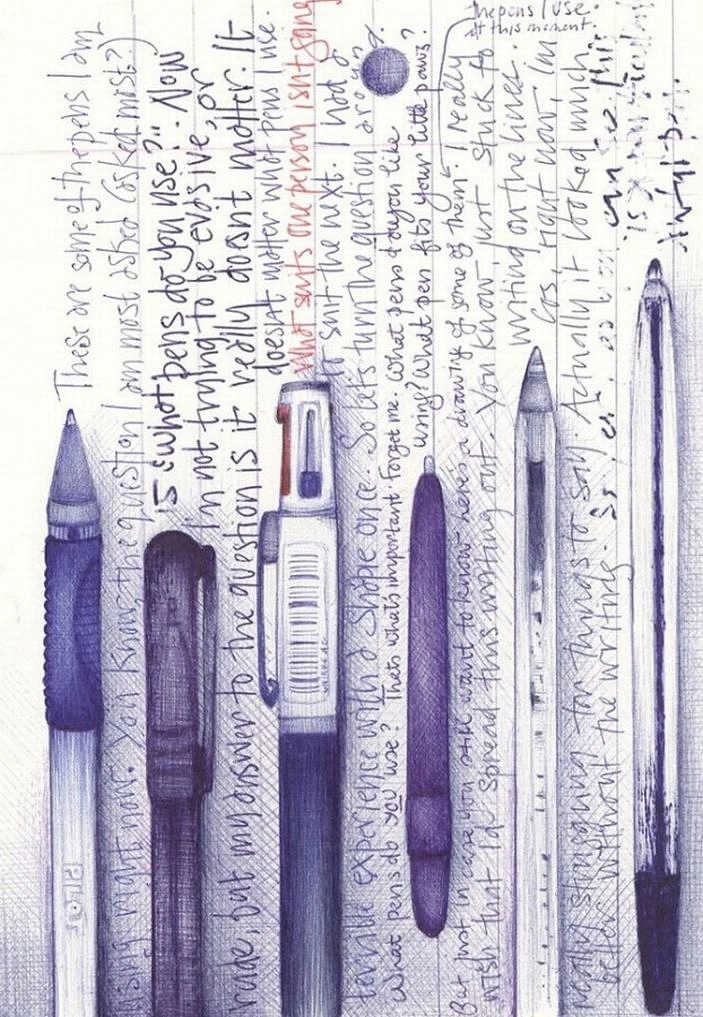 These are some of the pens I am
using right now. You know, the question I am most asked (asked most?)
is "what pens do you use?". Now
Im not trying to be evasive, or
rude, but my answer to the question is it really doesnt matter. It
doesnt matter what pens I use.
What suits one person isnt going
to suit the next. I had a
terrible experience with a Sharpie once. So lets turn the question
What pens do YOU use? Thats whats important. Forget me. What pens do you like
using? What pen fits your little paws?
But just in case you still want to know heres a drawing of some of them. I really
the pens I use.
at this moment.
wish that Id spread this writing out. You know just stuck to
writing on the lines.
Cos, right now, Im
really struggling for things to say. Actually it looked much
better without the writing.
PILOT